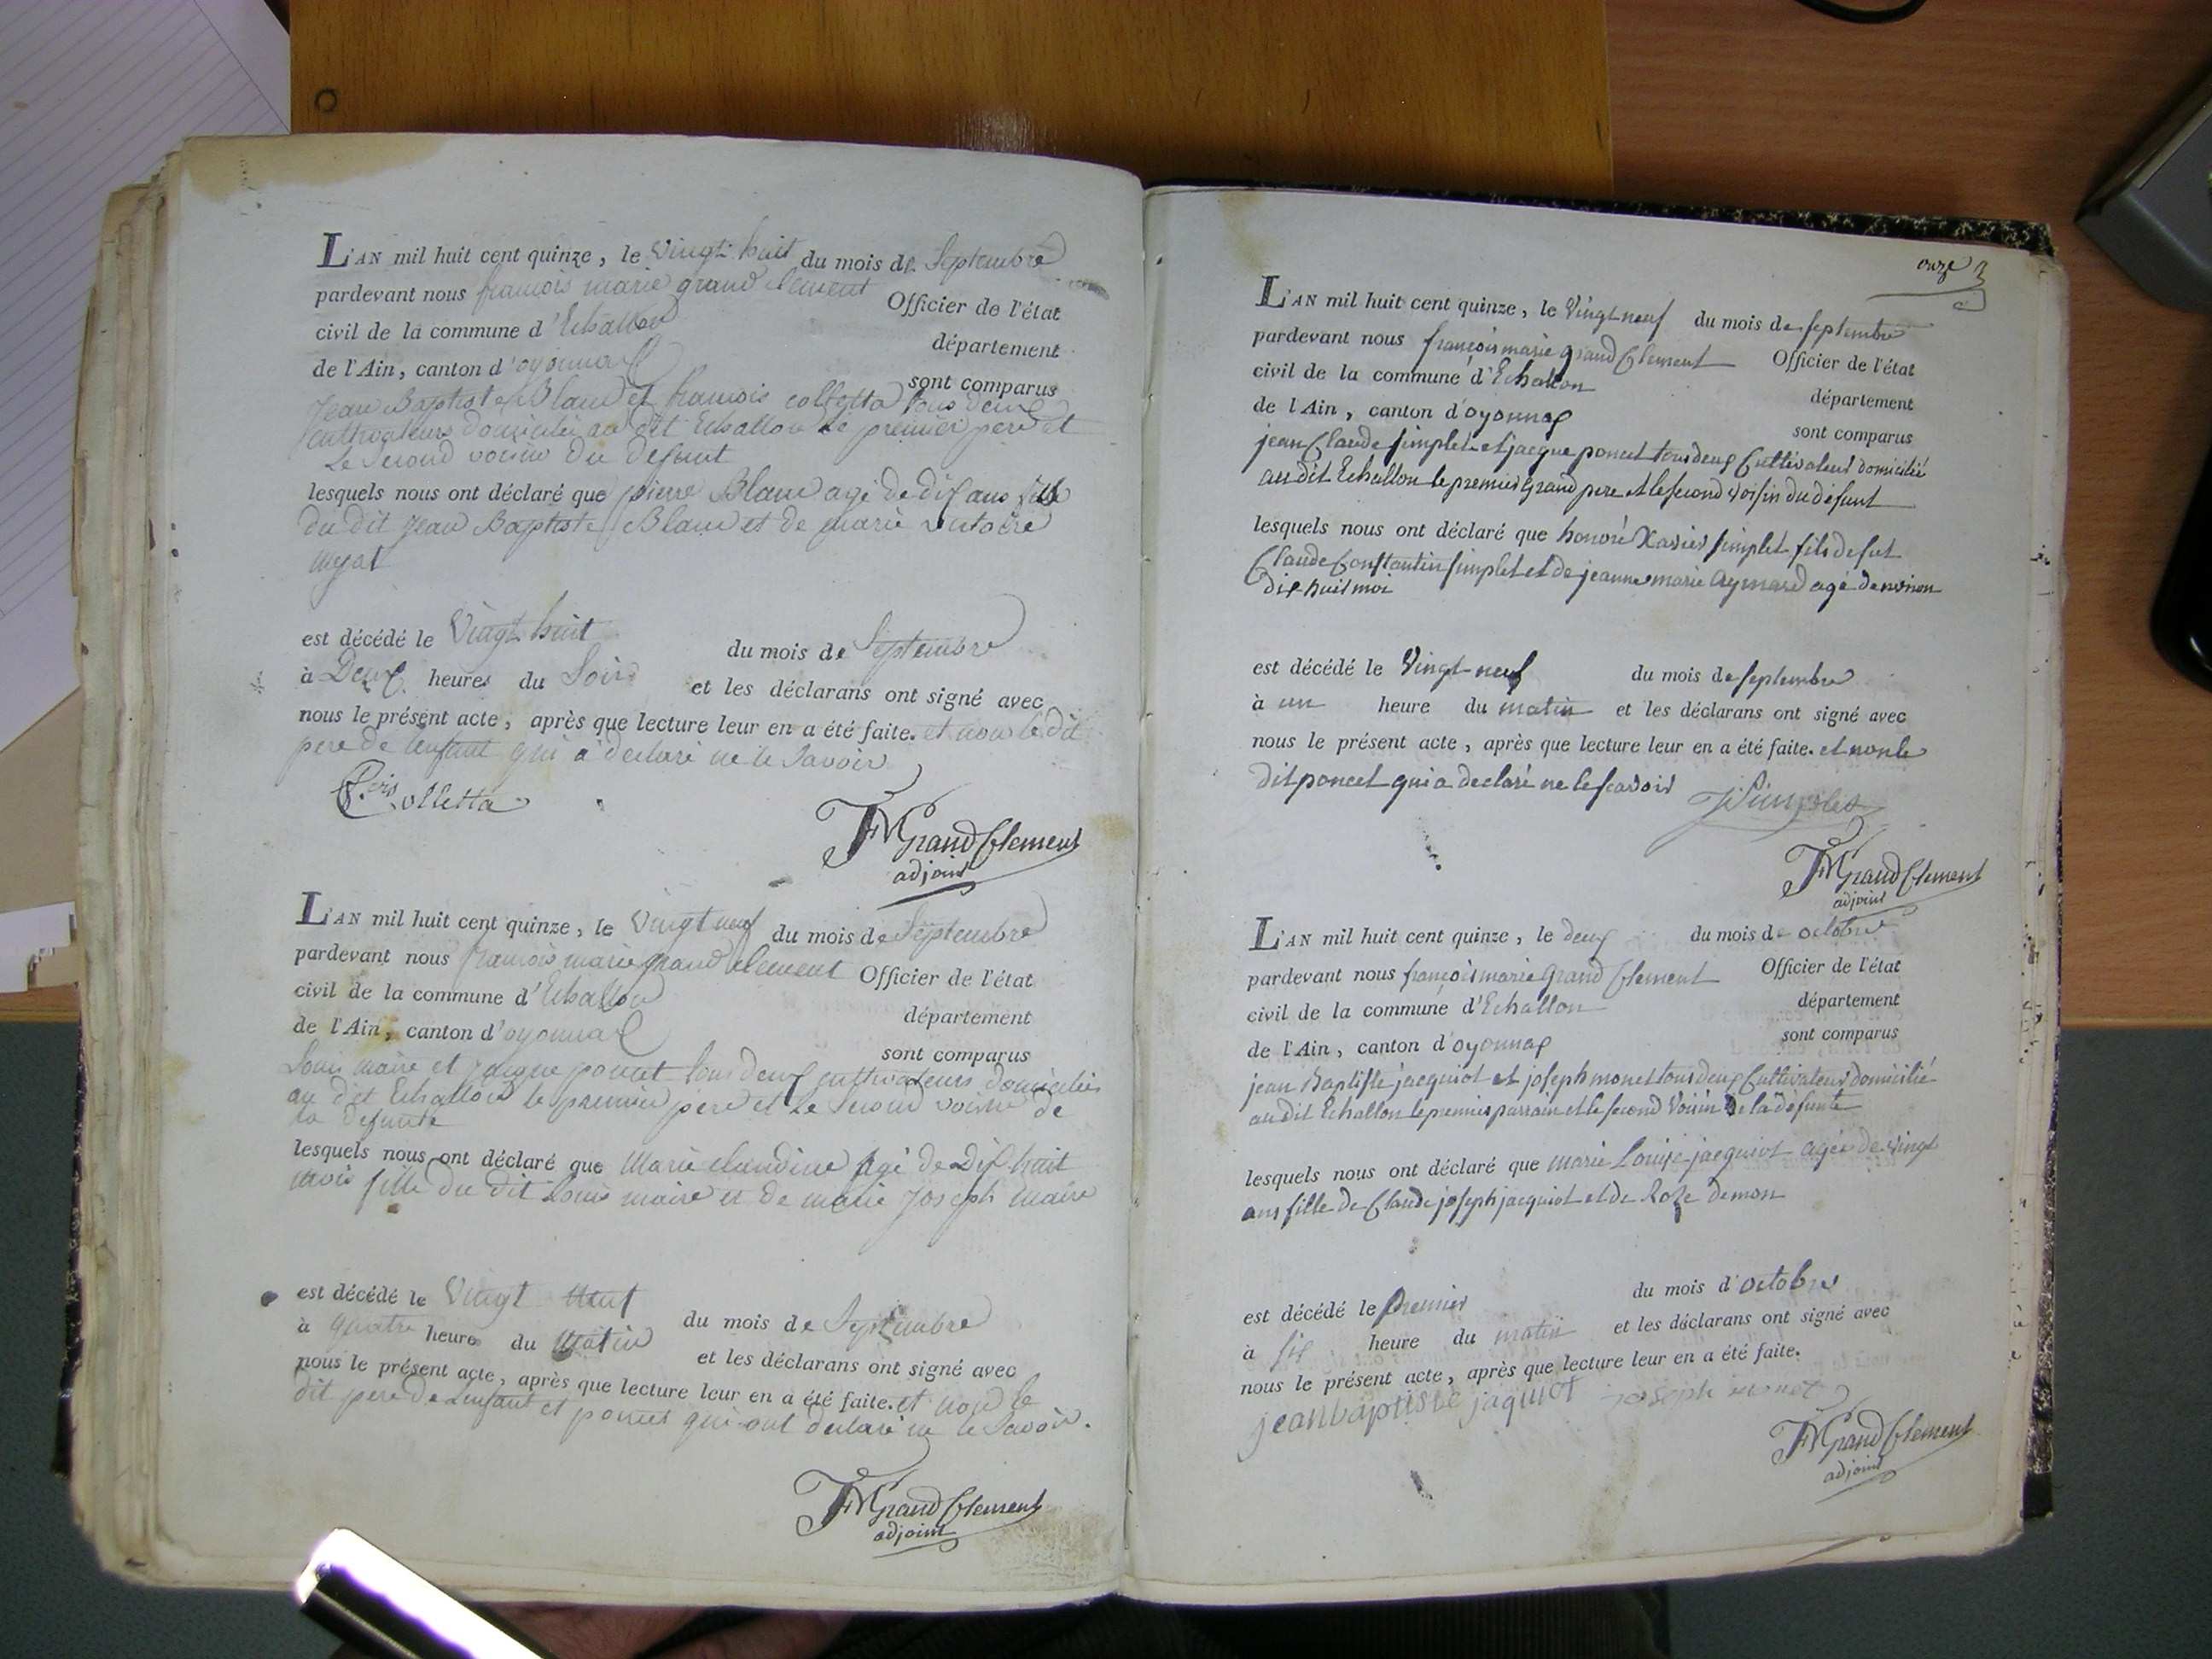 L'AN mil huit cent quinze, le vingt huit du mois de Septembre
pardevant nous francois marie grand clement Officier de l'état
civil de la commune d'Echallon département
de l'Ain, canton d'oyonnax sont comparus
Jean Baptiste Blanc et francois colletta tous deux
cultivateurs domicilié au dit Echallon le premier pere et
Le Second voisin du defunt
lesquels nous ont déclaré que pierre Blanc agé de dix ans fils
du dit Jean Baptiste Blanc et de marie victoire
mejat
est décédé le Vingt huit du mois de Septembre
à Deux heures du Soir et les déclarans ont signé avec
nous le présent acte, après que lecture leur en a été faite. et non le dit
pere de lenfant qui a declaré ne le Savoir
f.cois Colletta
FMGrandClement
adjoint
L'AN mil huit cent quinze, le vingt neuf du mois de Septembre
pardevant nous francois marie grand clement Officier de l'état
civil de la commune d'Echallon département
de l'Ain, canton d'oyonnax sont comparus
Louis maire et jacque poncet tous deux cultivateurs domiciliés
au dit Echallon le premier pere et Le Second voisin de
la defunte
lesquels nous ont déclaré que Marie claudine agé de Dix huit
mois fille du dit Louis maire et de marie Joseph maire
est décédé le Vingt neuf du mois de Septembre
à quatre heures du Matin et les déclarans ont signé avec
nous le présent acte, après que lecture leur en a été faite. et non le
dit pere de Lenfant et poncet qui ont declaré ne le Savoir.
FMGrandClement
adjoint
onze
L'AN mil huit cent quinze, le Vingt neuf du mois de septembre
pardevant nous françois marie grand Clement Officier de l'état
civil de la commune d'Echallon département
de l'Ain, canton d'oyonnax sont comparus
jean Claude simplet et jacque poncet tous deux Cultivateur domicilié
au dit Echallon le premier grand pere et le second voisin du défunt
lesquels nous ont déclaré que honoré Xavier simplet fils de fut
Claude Constantin simplet et de jeanne marie Aymard agé denviron
dix huit moi
est décédé le Vingt-neuf du mois de septembre
à un heure du matin et les déclarans ont signé avec
nous le présent acte, après que lecture leur en a été faite. et non le
dit poncet qui a declaré ne le scavoir
Simplet
FMGrandClement
adjoint
L'AN mil huit cent quinze, le deux du mois d'octobre
pardevant nous françois marie Grand Clement Officier de l'état
civil de la commune d'Echallon département
de l'Ain, canton d'oyonnax sont comparus
jean Baptiste jacquiot et joseph monet tous deux Cultivateur domicilié
au dit Echallon le premier parrain et le second Voisin de la défunte
lesquels nous ont déclaré que marie Louise jacquiot agée de vingt
ans fille de Claude joseph jacquiot et de Roze demon
est décédé le premier du mois d'octobre
à six heure du matin et les déclarans ont signé avec
nous le présent acte, après que lecture leur en a été faite.
jeanbaptiste jaquiot joseph monet
FMGrandClement
adjoint